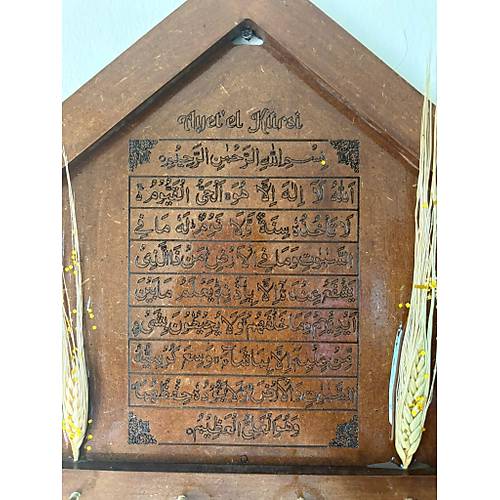 Ayet'el Kürsi
بسم الله الرحمن الرحيم
الله لا إله إلا هو الحي القيوم
لا تأخذه سنة ولا نوم له ما في
السموات وما في الأرض من ذا الذي
يشفع عنده إلا بإذنه يعلم ما بين
أيديهم وما خلفهم ولا يحيطون بشيء
من علمه إلا بما شاء وسع كرسيه
السموات والأرض ولا يؤده حفظهما
وهو العلي العظيم